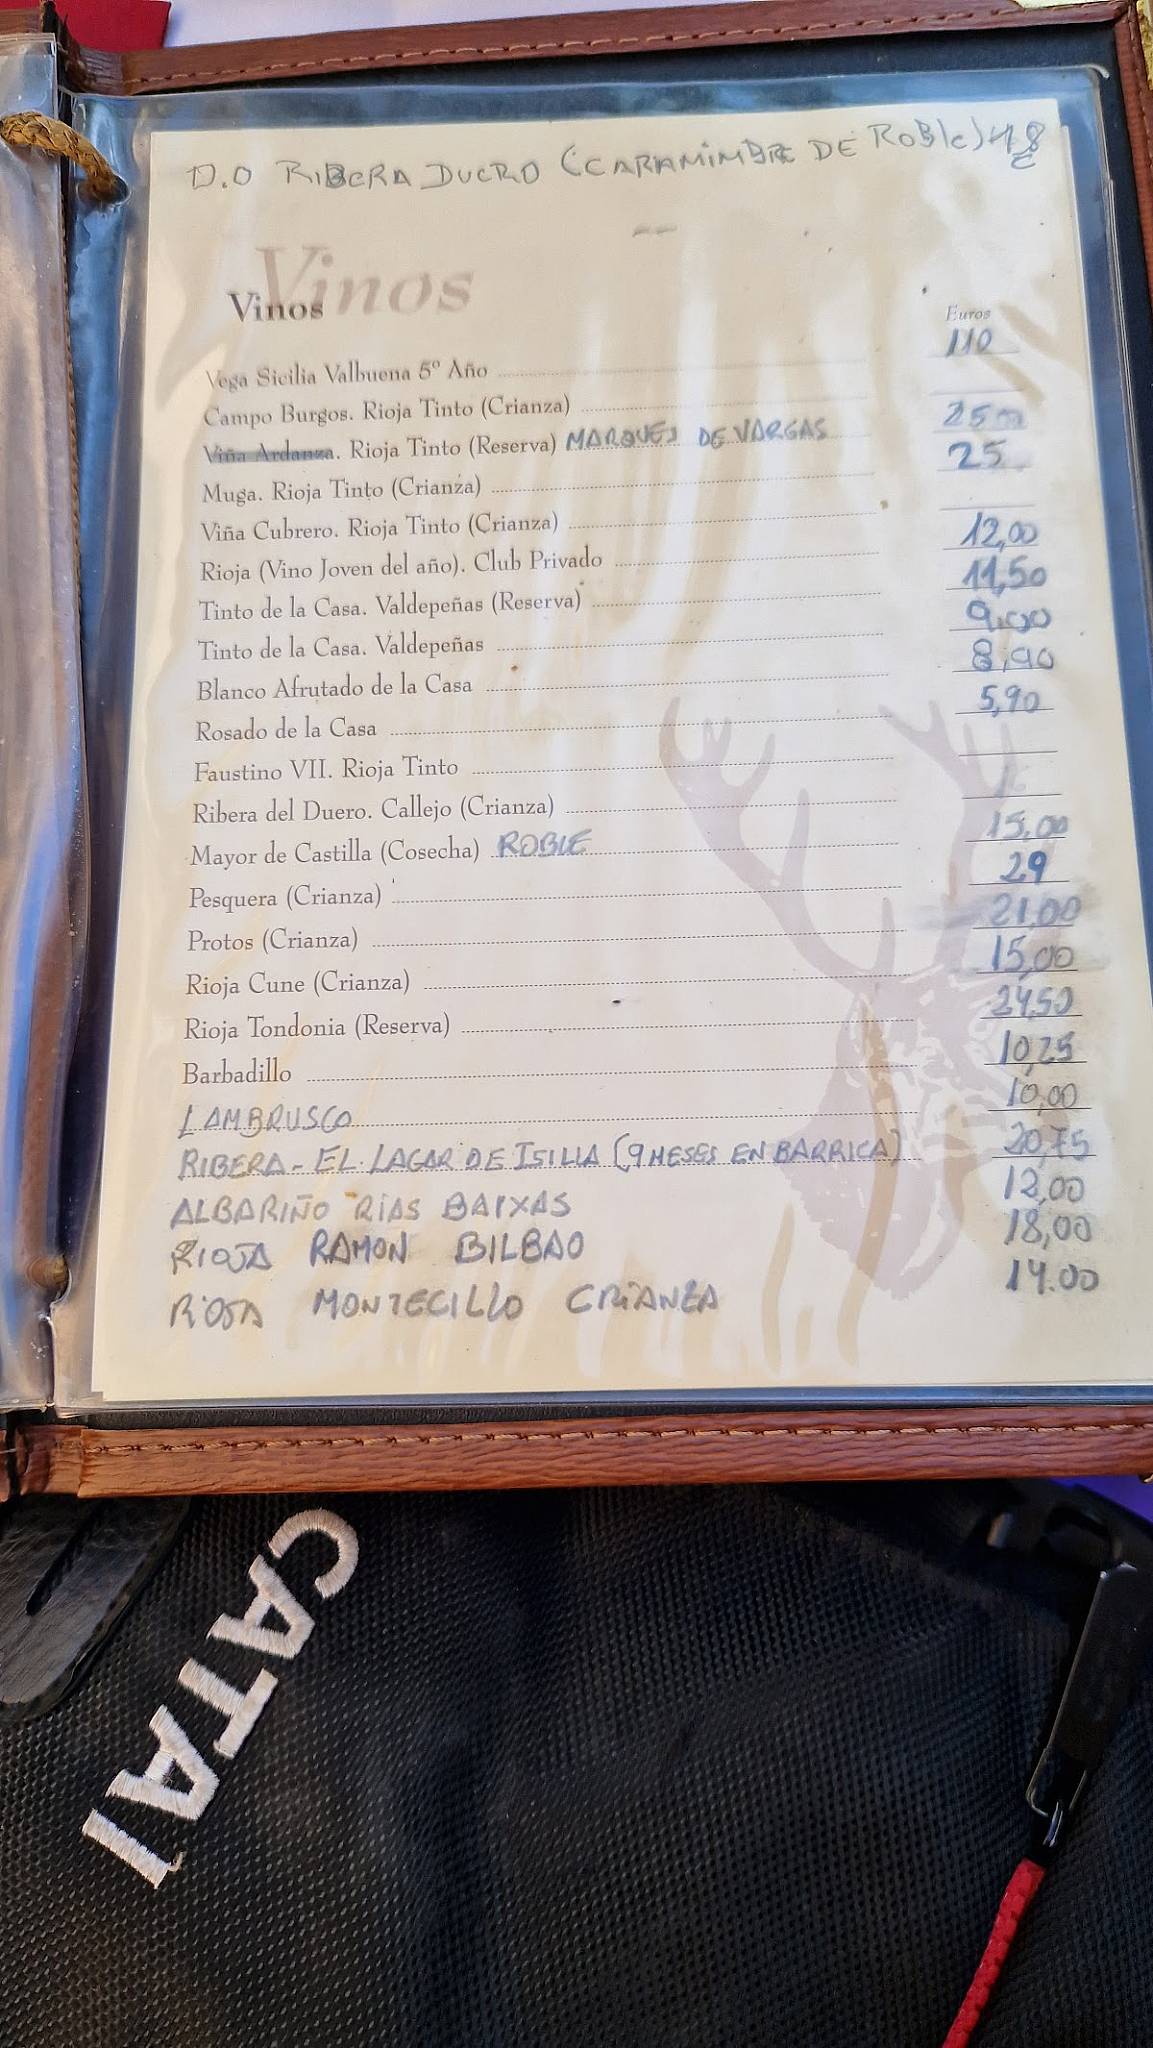 D.O RIBERA DUERO (CARAMIMBRE DE ROBLE) 18 €
Vinos
Vinos
Euros
Vega Sicilia Valbuena 5º Año 110
Campo Burgos. Rioja Tinto (Crianza)
Viña Ardanza. Rioja Tinto (Reserva) MARQUES DE VARGAS 25,00
Muga. Rioja Tinto (Crianza) 25
Viña Cubrero. Rioja Tinto (Crianza)
Rioja (Vino Joven del año). Club Privado 12,00
Tinto de la Casa. Valdepeñas (Reserva) 11,50
Tinto de la Casa. Valdepeñas 9,00
Blanco Afrutado de la Casa 8,90
Rosado de la Casa 5,90
Faustino VII. Rioja Tinto
Ribera del Duero. Callejo (Crianza)
Mayor de Castilla (Cosecha) ROBLE 15,00
Pesquera (Crianza) 29
Protos (Crianza) 21,00
Rioja Cune (Crianza) 15,00
Rioja Tondonia (Reserva) 24,50
Barbadillo 10,25
LAMBRUSCO 10,00
RIBERA - EL LAGAR DE ISILLA (9 MESES EN BARRICA) 20,75
ALBARIÑO RIAS BAIXAS 12,00
RIOJA RAMON BILBAO 18,00
RIOJA MONTECILLO CRIANZA 14.00
CATAI